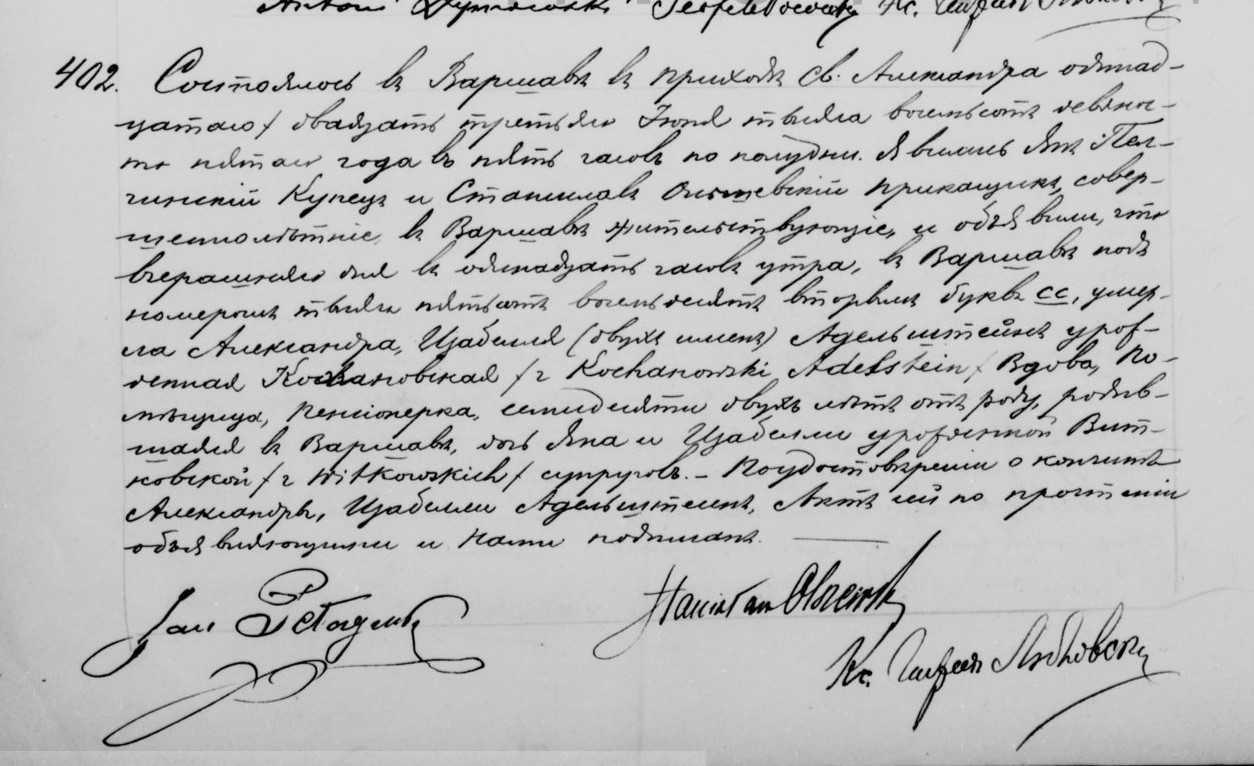 402. Состоялось въ Варшавѣ въ приходѣ Св. Александра одинад-
цатаго / двадцать третьяго Іюня тысяча восемьсотъ девяно-
то пятаго года въ пять часовъ по полудни. Явились Янъ
Купецъ и Станиславъ прикащикъ, совер-
шеннолѣтніе, въ Варшавѣ жительствующіе, и объявили, что
вчерашняго дня въ одинадцать часовъ утра, въ Варшавѣ подъ
номеромъ тысяча пятьсотъ восемьдесятъ вторымъ буквъ сс, умер-
ла Александра, Изабелля (двухъ именъ) Адельштейнъ урож-
денная Кохановская /z Kochanowski Adelstein/ Вдова, По-
мѣщица, пенсіонерка, семидесяти двухъ лѣтъ отъ роду, родив-
шаяся въ Варшавѣ, дочь Яна и Изабелли урожденной Вит-
ковской /z Witkowskich/ супруговъ. – По удостовѣреніи о кончинѣ
Александры, Изабелли Адельштейнъ, Актъ сей по прочтеніи
объявляющими и Нами подписанъ.
Jan
Stanisław
Кс.